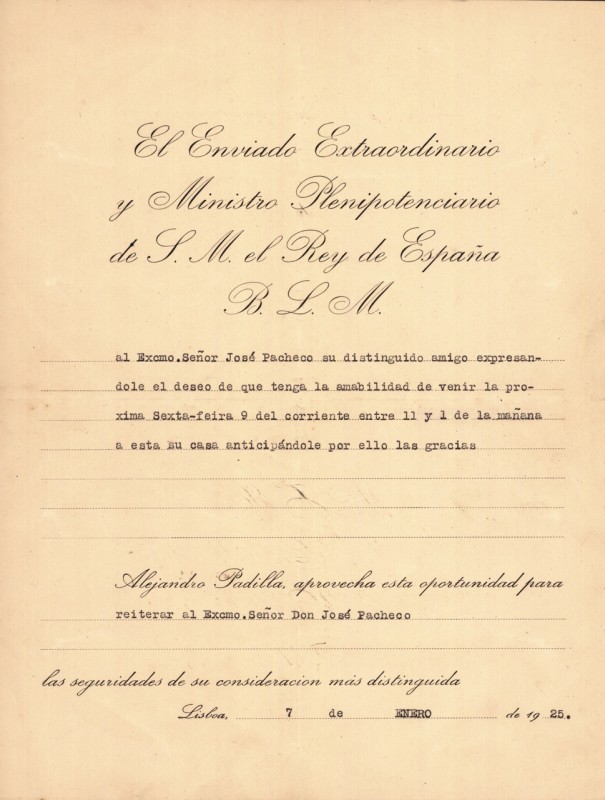 El Enviado Extraordinario
y Ministro Plenipotenciario
de S. M. el Rey de España
B. L. M.
al Excmo.Señor José Pacheco su distinguido amigo expresan-
dole el deseo de que tenga la amabilidad de venir la pro-
xima Sexta-feira 9 del corriente entre 11 y 1 de la mañana
a esta su casa anticipándole por ello las gracias
Alejandro Padilla, aprovecha esta oportunidad para
reiterar al Excmo.Señor Don José Pacheco
las seguridades de su consideracion más distinguida
Lisboa, 7 de ENERO de 19 25.